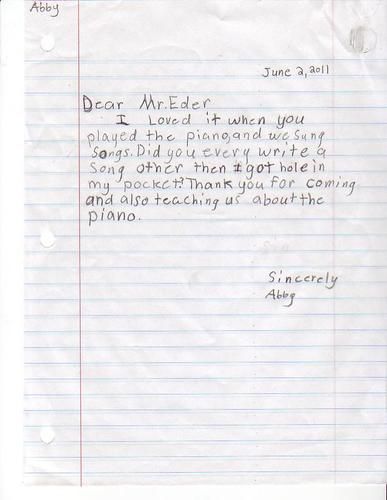 Abby
June 2, 2011
Dear Mr. Eder
I Loved it when you
played the piano, and we sung
songs. Did you every write a
song other then I got hole in
my pocket? Thank you for coming
and also teaching us about the
piano.
Sincerely
Abby